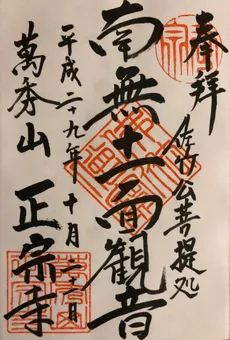 奉拝
佐竹公菩提処
南無十一面観音
平成二十九年 十月二十二日
萬秀山 正宗寺